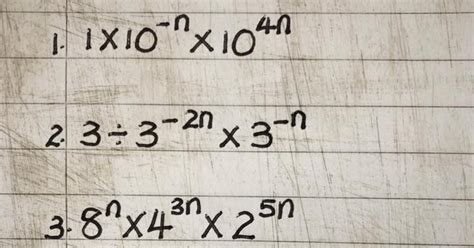 1. 1×10⁻ⁿ×10⁴ⁿ
2. 3÷3⁻²ⁿ×3⁻ⁿ
3. 8ⁿ×4³ⁿ×2⁵ⁿ